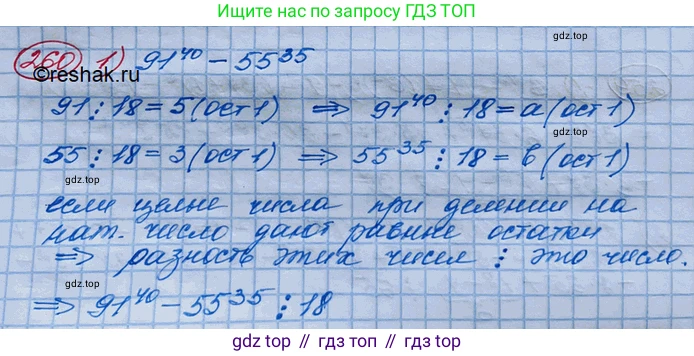 Ищите нас по запросу ГДЗ ТОП
260 1) 91^40 − 55^35
©reshak.ru
91 ⋮ 18 = 5 (ост 1) ⇒ 91^40 ⋮ 18 = a (ост 1)
gdz.top gdz.top
55 ⋮ 18 = 3 (ост 1) ⇒ 55^35 ⋮ 18 = b (ост 1)
gdz.top gdz.top
если целые числа при делении на
нат. число дают равные остатки
gdz.top gdz.top
⇒ разность этих чисел ⋮ это число.
⇒ 91^40 − 55^35 ⋮ 18
gdz.top // gdz.top // gdz.top